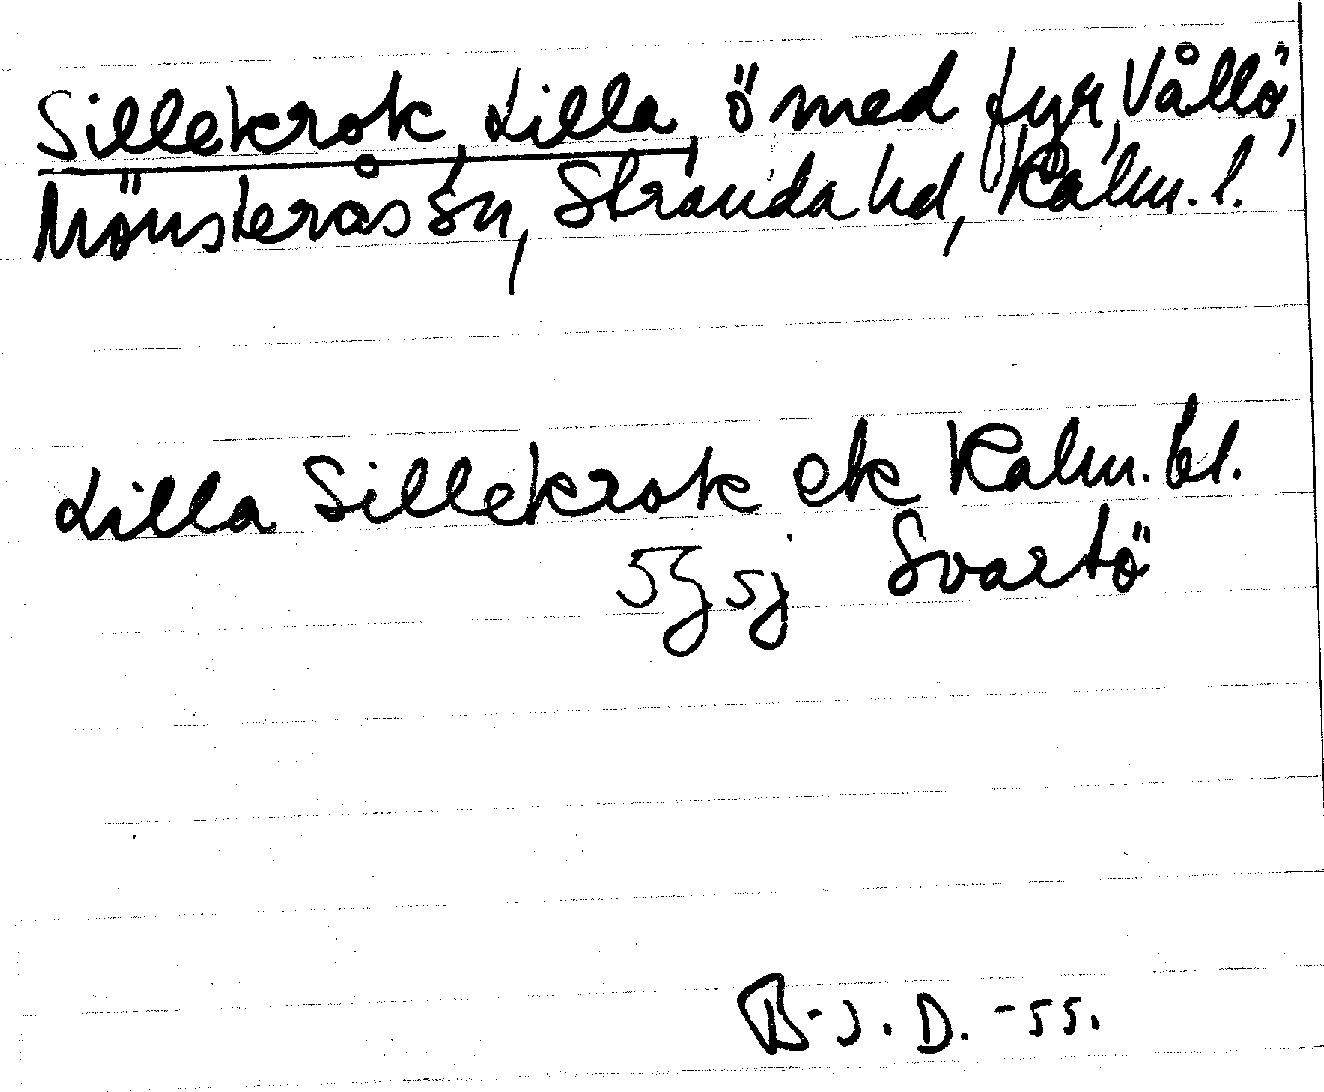 Sillekrok, Lilla, ö med fyr, Vållö,
Mönsterås sn, Stranda hd, Kalm. l.
Lilla Sillekrok ek Kalm. bl.
Svartö
B-J. D. -55.